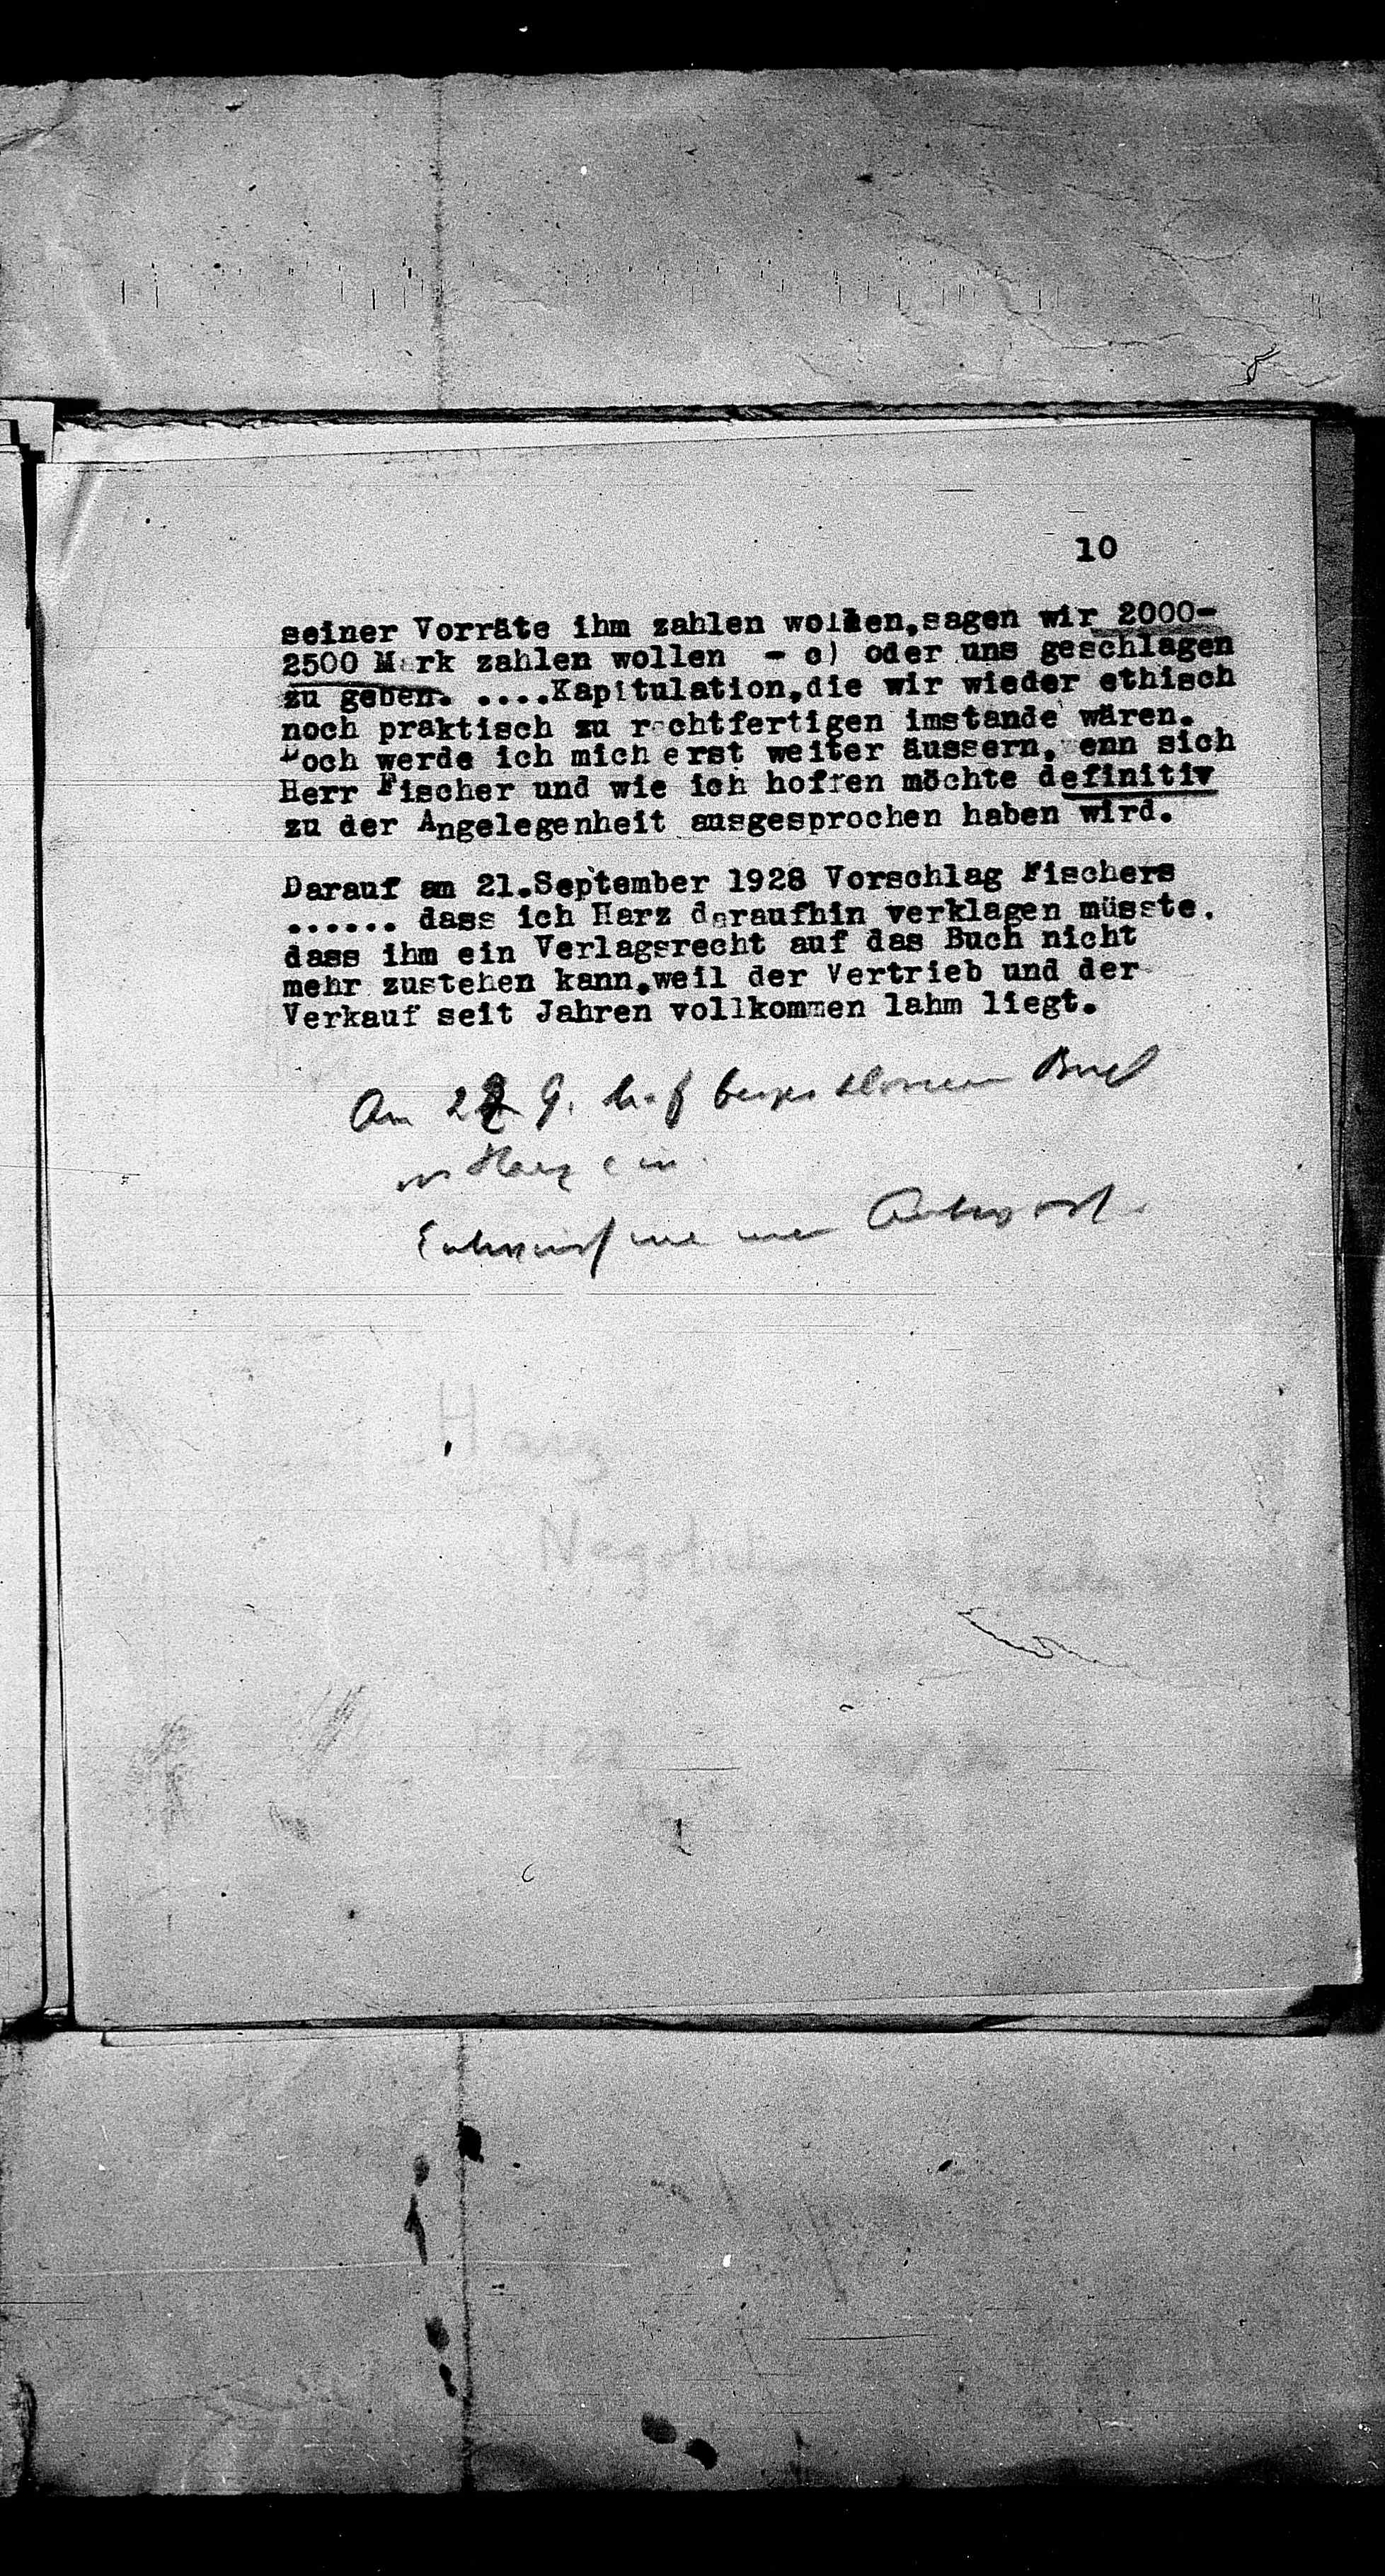 10
seiner Vorräte ihm zahlen wollen,sagen wir 2000-
2500 Mark zahlen wollen - c) oder uns geschlagen
zu geben. ....Kapitulation,die wir wieder ethisch
noch praktisch zu rechtfertigen imstande wären.
Doch werde ich mich erst weiter äussern, wenn sich
Herr Fischer und wie ich hoffen möchte definitiv
zu der Angelegenheit ausgesprochen haben wird.
Darauf am 21.September 1928 Vorschlag Fischers
...... dass ich Harz daraufhin verklagen müsste,
dass ihm ein Verlagsrecht auf das Buch nicht
mehr zustehen kann,weil der Vertrieb und der
Verkauf seit Jahren vollkommen lahm liegt.
Am 9. beigeschlossener Brief
v Harz ein.
Entwurf Antwort
Harz